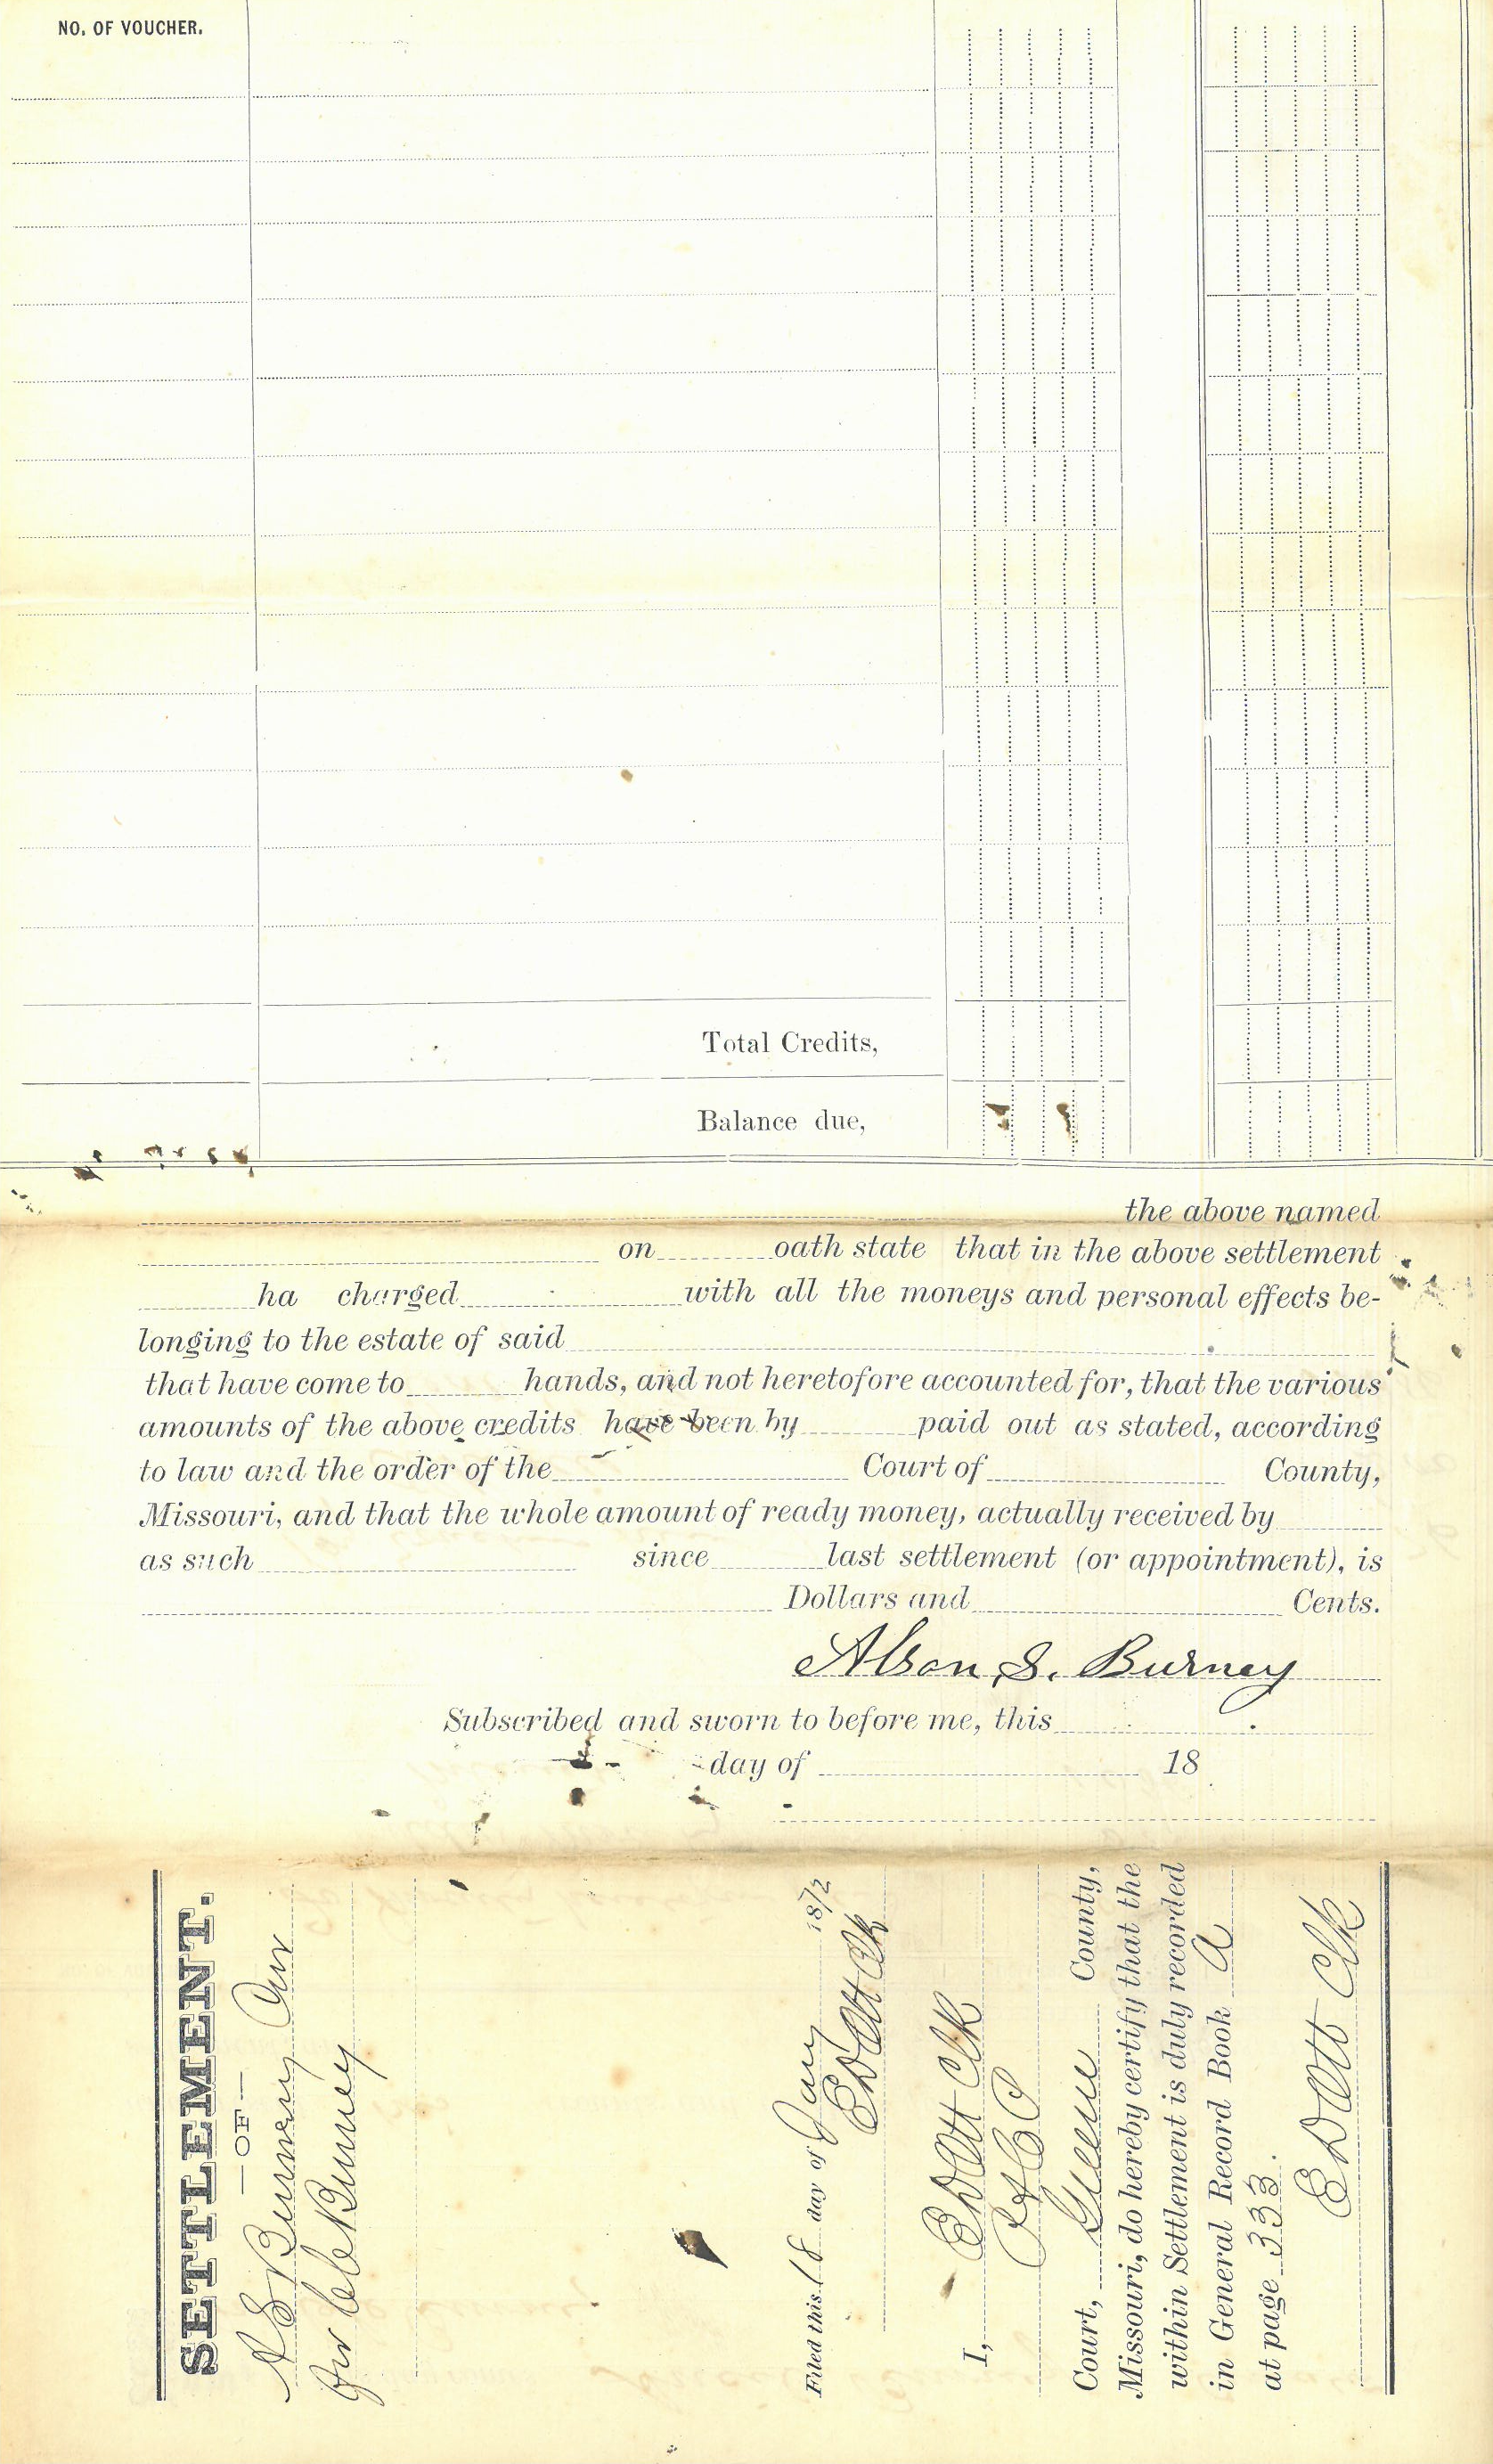 NO. OF VOUCHER.
Total Credits,
Balance due,
the above named
on oath state that in the above settlement
ha charged with all the moneys and personal effects be-
longing to the estate of said
that have come to hands, and not heretofore accounted for, that the various
amounts of the above credits have been by paid out as stated, according
to law and the order of the Court of County,
Missouri, and that the whole amount of ready money, actually received by
as such since last settlement (or appointment), is
Dollars and Cents.
Alson S. Burney
Subscribed and sworn to before me, this
day of 18
SETTLEMENT.
—OF—
A S Burney
Burney
Filed this 18 day of Jany 18
Clk
I, Clk
Court, Greene County,
Missouri, do hereby certify that the
within Settlement is duly recorded
in General Record Book A
at page 333.
Clk